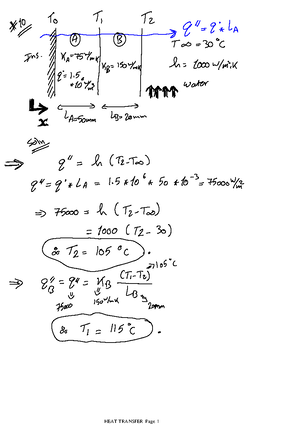 #10
T₀ T₁ T₂
q" = q° * L_A
Ins. Ⓐ Ⓑ
T∞ = 30°C
K_A = 75 W/mK
K_B = 150 W/mK
h = 1000 W/m².K
q° = 1.5 * 10⁶ W/m³
water
x
L_A = 50mm L_B = 20mm
Soln
⇒ q" = h (T₂ - T∞)
q" = q° * L_A = 1.5 * 10⁶ * 50 * 10⁻³ = 75000 W/m²
⇒ 75000 = h (T₂ - T∞)
= 1000 (T₂ - 30)
∴ T₂ = 105 °C
⇒ q"_B = q" = K_B (T₁ - T₂) / L_B
105°C
75000 150 W/mK 20mm
∴ T₁ = 115 °C
HEAT TRANSFER Page 1